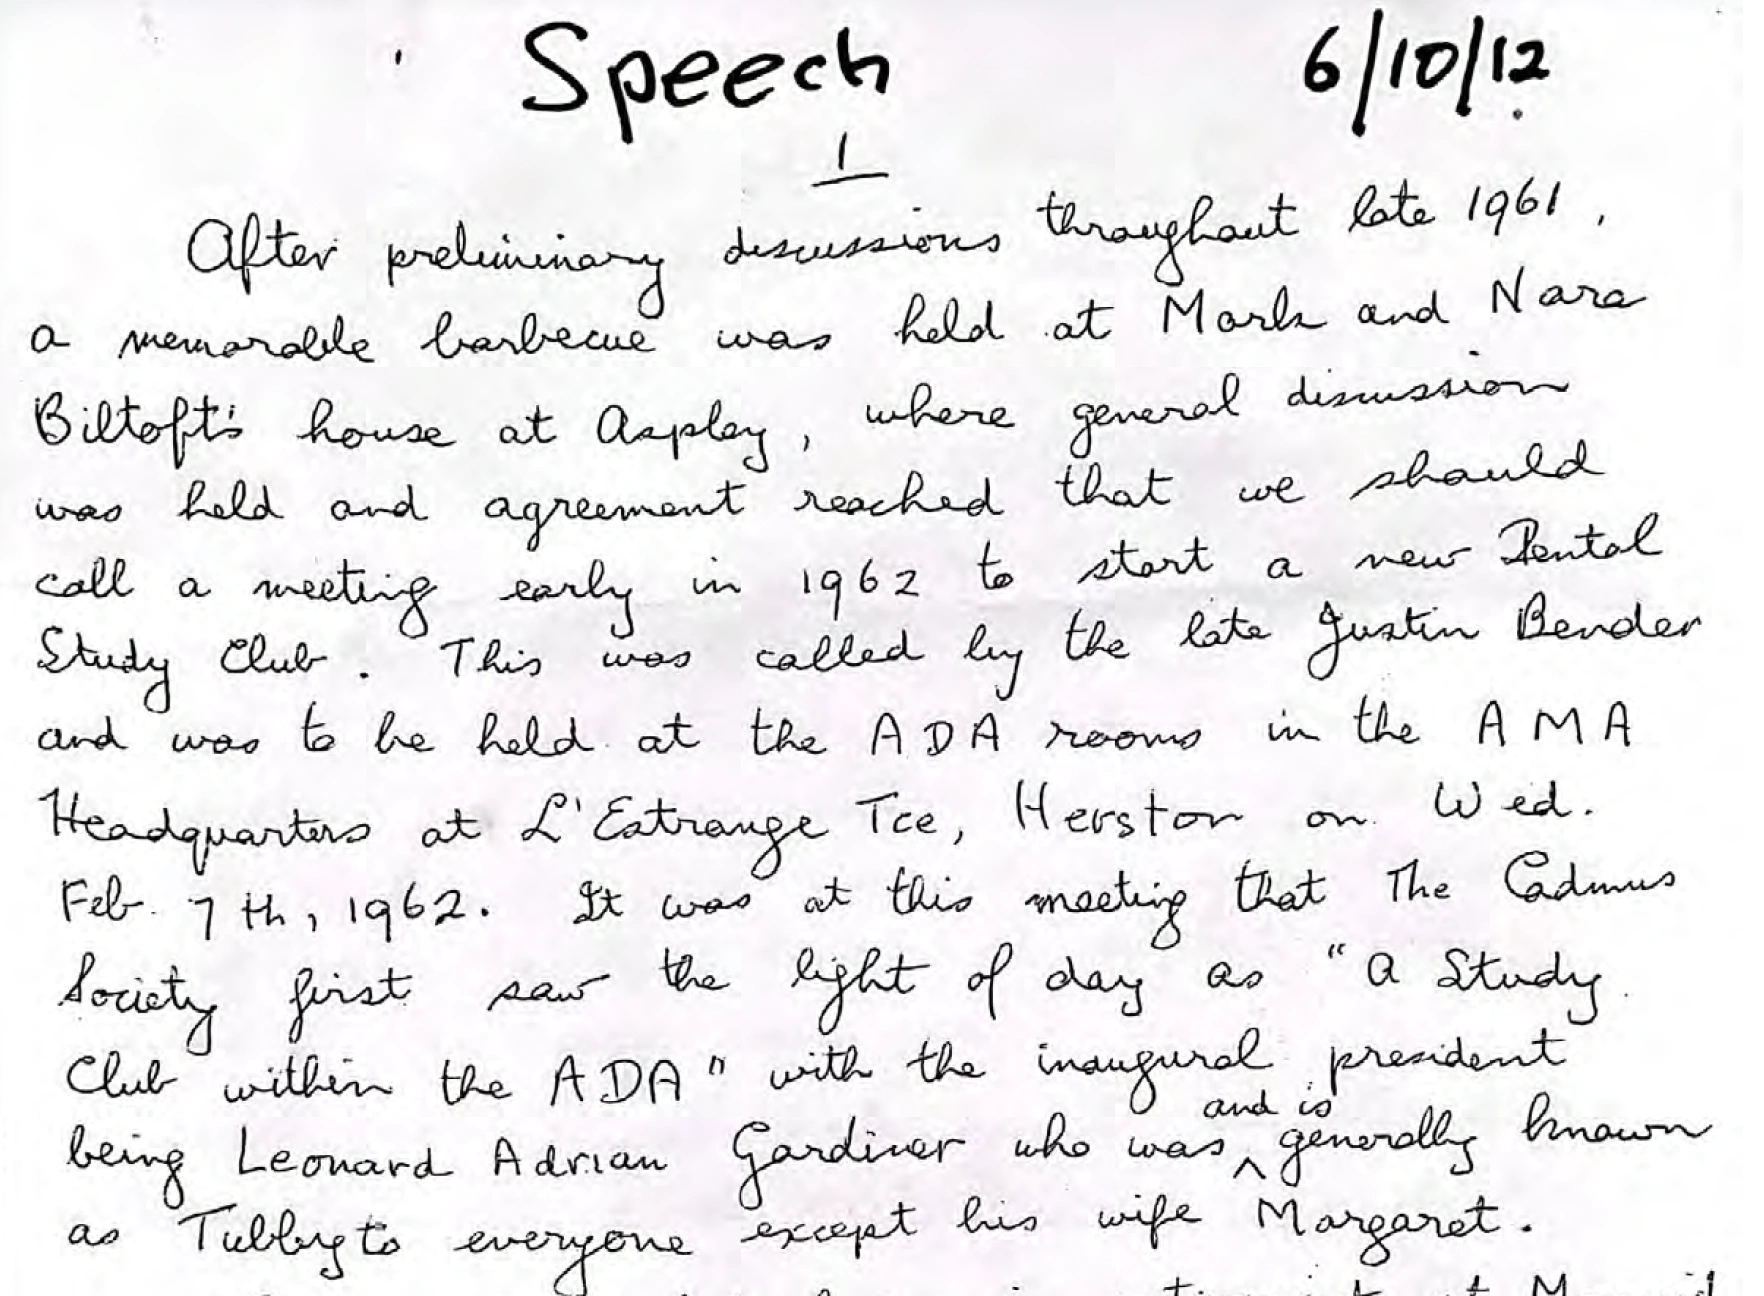 Speech 6/10/12
1
After preliminary discussions throughout late 1961,
a memorable barbecue was held at Mark and Nara
Biltoft's house at Aspley, where general discussion
was held and agreement reached that we should
call a meeting early in 1962 to start a new Dental
Study Club. This was called by the late Justin Bender
and was to be held at the ADA rooms in the AMA
Headquarters at L'Estrange Tce, Herston on Wed.
Feb. 7th, 1962. It was at this meeting that The Cadmus
Society first saw the light of day as "A Study
Club within the ADA" with the inaugural president
and is
being Leonard Adrian Gardiner who was ^ generally known
as Tubby to everyone except his wife Margaret.